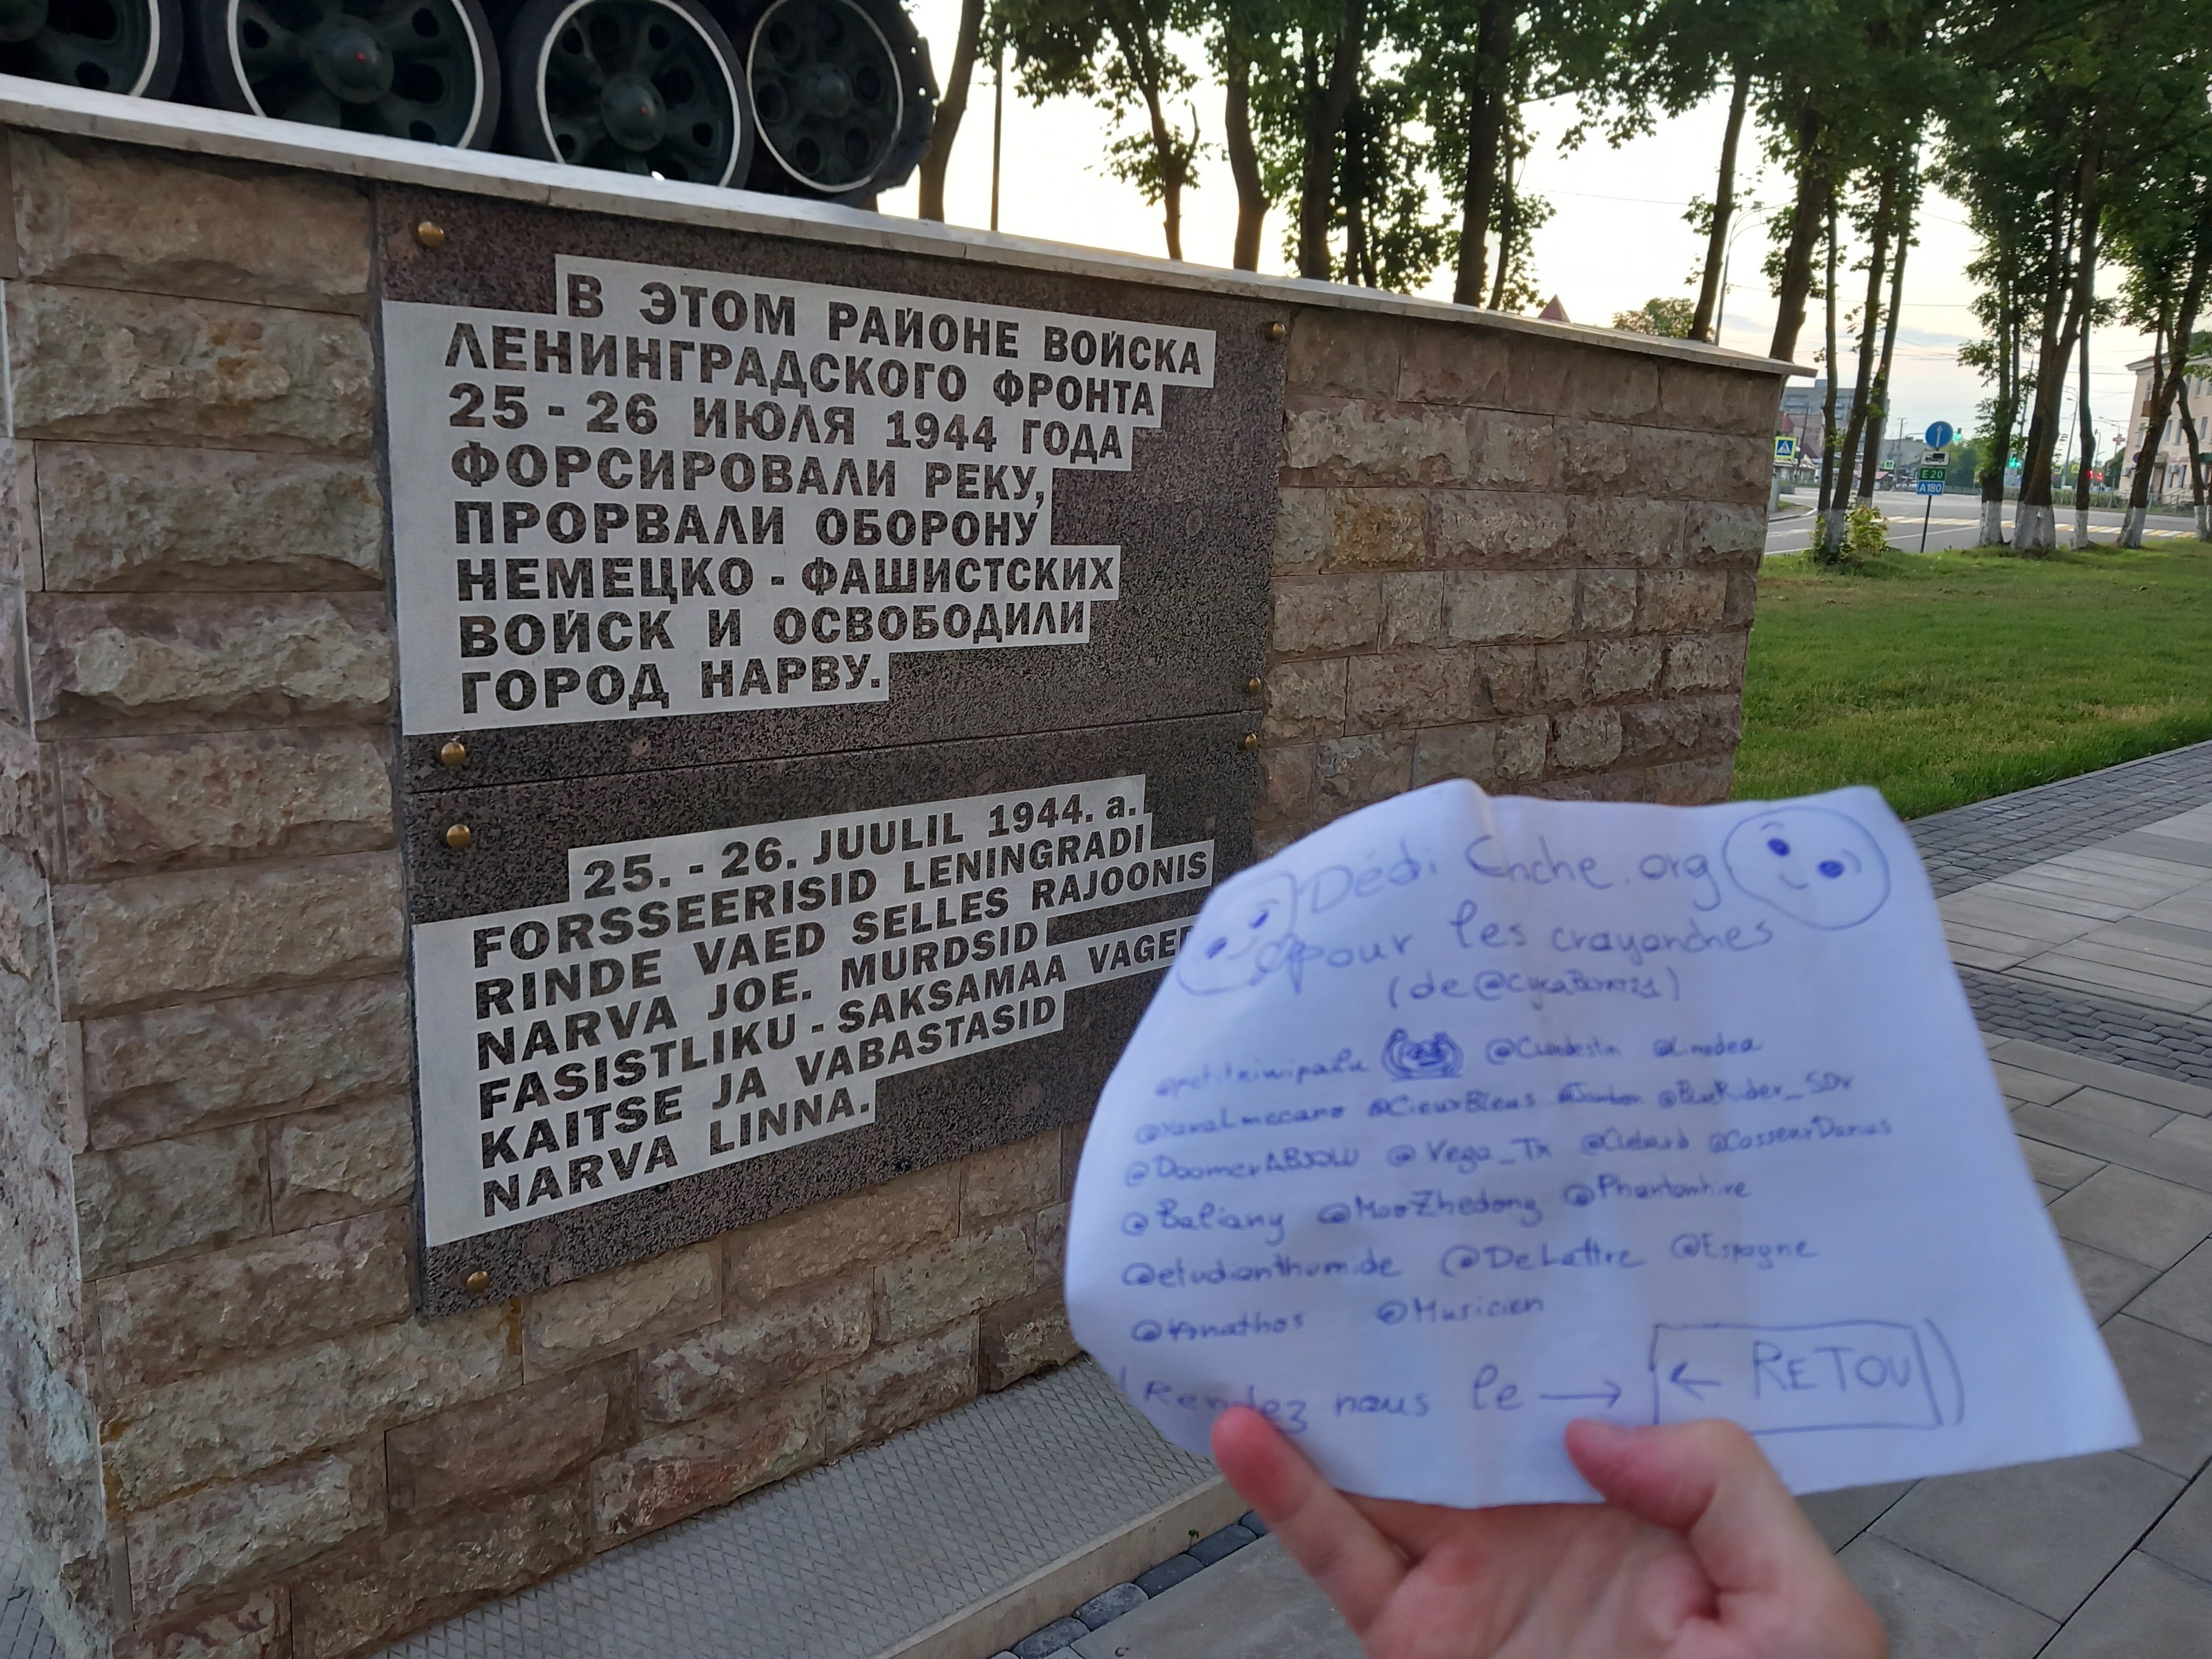 В ЭТОМ РАЙОНЕ ВОЙСКА
ЛЕНИНГРАДСКОГО ФРОНТА
25 - 26 ИЮЛЯ 1944 ГОДА
ФОРСИРОВАЛИ РЕКУ,
ПРОРВАЛИ ОБОРОНУ
НЕМЕЦКО - ФАШИСТСКИХ
ВОЙСК И ОСВОБОДИЛИ
ГОРОД НАРВУ.
25. - 26. JUULIL 1944. a.
FORSSEERISID LENINGRADI
RINDE VAED SELLES RAJOONIS
NARVA JOE. MURDSID
FASISTLIKU - SAKSAMAA VAGED
KAITSE JA VABASTASID
NARVA LINNA.
E 20
A180
Dédi Cnche.org
pour les crayonches
(de @CycaBlyat21)
@petitkiwipalu @Clandestin @Linodea
@CieuxBleus @Jambon @BlueRider_SDV
@DoomerABSOLU @Vega_Tx @Clebard @CasseurDanus
@Baliany @MaoZhedong @Phantomhive
@etudianthumide @DeLattre @Espagne
@Musicien
Rendez nous le → ← RETOU